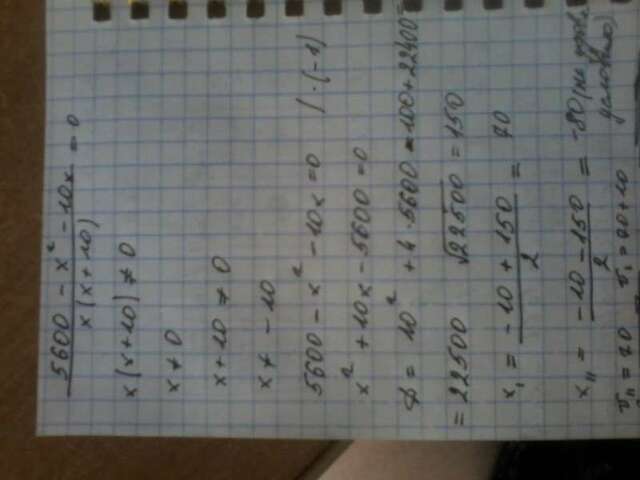 5600 - x² - 10x / x(x+10) = 0
x(x+10) ≠ 0
x ≠ 0
x+10 ≠ 0
x ≠ -10
5600 - x² - 10x = 0 | · (-1)
x² + 10x - 5600 = 0
D = 10² + 4 · 5600 = 100 + 22400 =
= 22500 √22500 = 150
x₁ = -10 + 150 / 2 = 70
x₁₁ = -10 - 150 / 2 = -80 (не удов. условию)
v₁₁ = 70 v₁ = 70 + 10